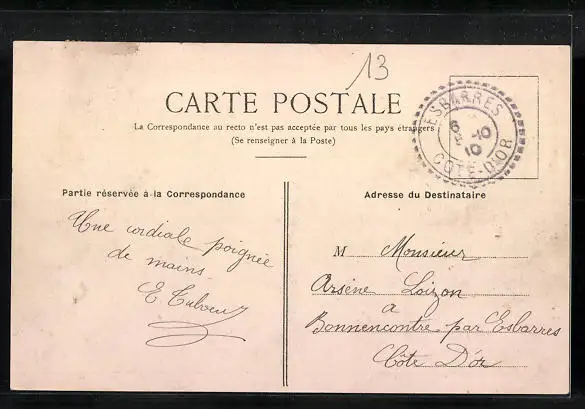 13
CARTE POSTALE
La Correspondance au recto n'est pas acceptée par tous les pays étrangers
(Se renseigner à la Poste)
ESBARRES
6
10
10
CÔTE-D'OR
Partie réservée à la Correspondance
Adresse du Destinataire
Une cordiale poignée
de mains.
E
M Monsieur
Arsène Loizon
a
Bonnencontre par Esbarres
Côte D'or